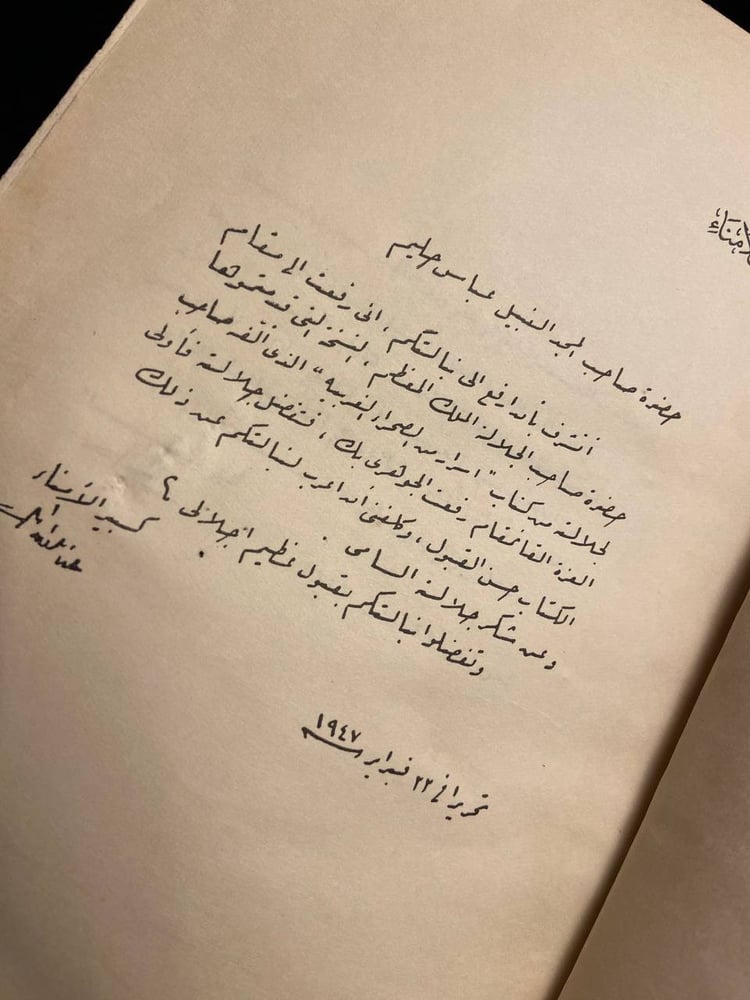 حضرة صاحب المجد النبيل عباس حليم
أتشرف بأن ارفع الى نبالتكم، انى رفعت الى مقام
حضرة صاحب الجلالة الملك المعظم، النسخة التى قدمتموها
لجلالته من كتاب "اسرار من الصحراء الغربية" الذى ألفه صاحب
العزة القائمقام رفعت الجوهرى بك، فتفضل جلالته فأولى
الكتاب حسن القبول، وكلفنى أن اعرب لنبالتكم عن ذلك
وعن شكر جلالته السامى.
وتفضلوا نبالتكم بقبول عظيم اجلالى
كبير الأمناء
تحريرا فى ٢٢ فبراير سنة ١٩٤٧